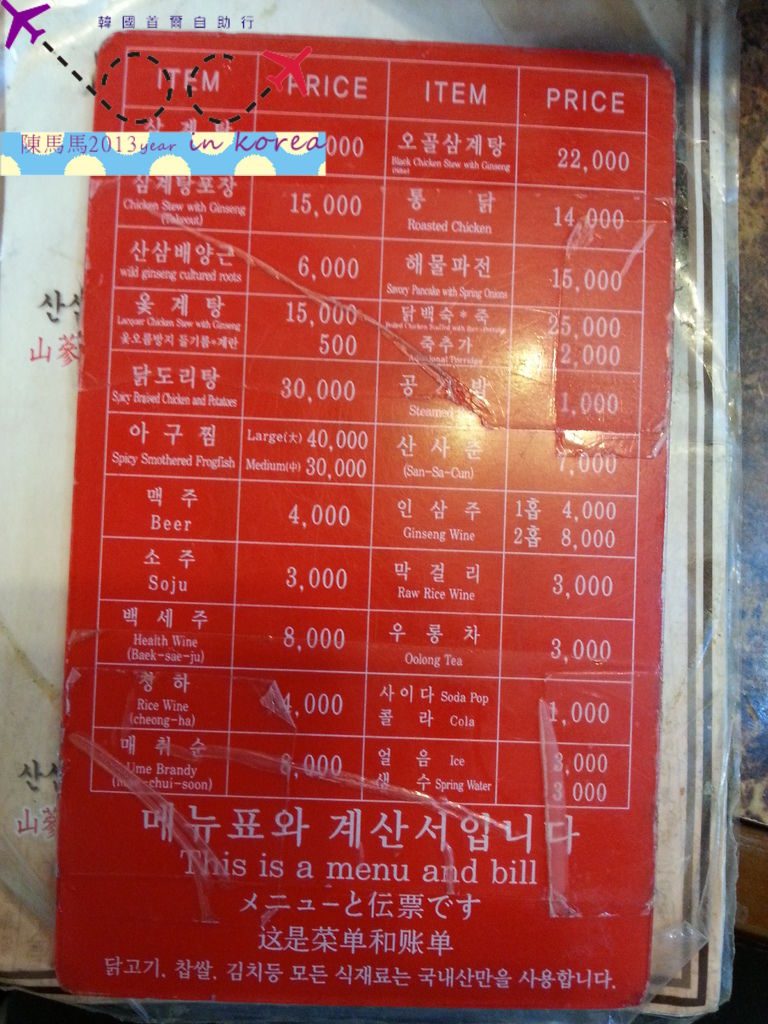 韓國首爾自助行
陳馬馬2013year in korea
ITEM PRICE ITEM PRICE
오골삼계탕
Black Chicken Stew with Ginseng
22,000
삼계탕포장
Chicken Stew with Ginseng
(Takeout)
15,000
통 닭
Roasted Chicken
14,000
산삼배양근
wild ginseng cultured roots
6,000
해물파전
Savory Pancake with Spring Onions
15,000
옻 계 탕
Lacquer Chicken Stew with Ginseng
15,000
옻오름방지 들기름+계란
500
닭백숙*죽
25,000
죽추가
Additional Porridge
2,000
닭도리탕
Spicy Braised Chicken and Potatoes
30,000
Steamed
1,000
아 구 찜
Spicy Smothered Frogfish
Large(大) 40,000
Medium(中) 30,000
산 사 춘
(San-Sa-Cun)
7,000
맥 주
Beer
4,000
인 삼 주
Ginseng Wine
1홉 4,000
2홉 8,000
소 주
Soju
3,000
막 걸 리
Raw Rice Wine
3,000
백 세 주
Health Wine
(Baek-sae-ju)
8,000
우 롱 차
Oolong Tea
3,000
청 하
Rice Wine
(cheong-ha)
4,000
사이다 Soda Pop
콜 라 Cola
1,000
매 취 순
Ume Brandy
8,000
얼 음 Ice
3,000
생 수 Spring Water
3 000
메뉴표와 계산서입니다
This is a menu and bill
メニューと伝票です
这是菜单和账单
닭고기. 찹쌀. 김치등 모든 식재료는 국내산만을 사용합니다.